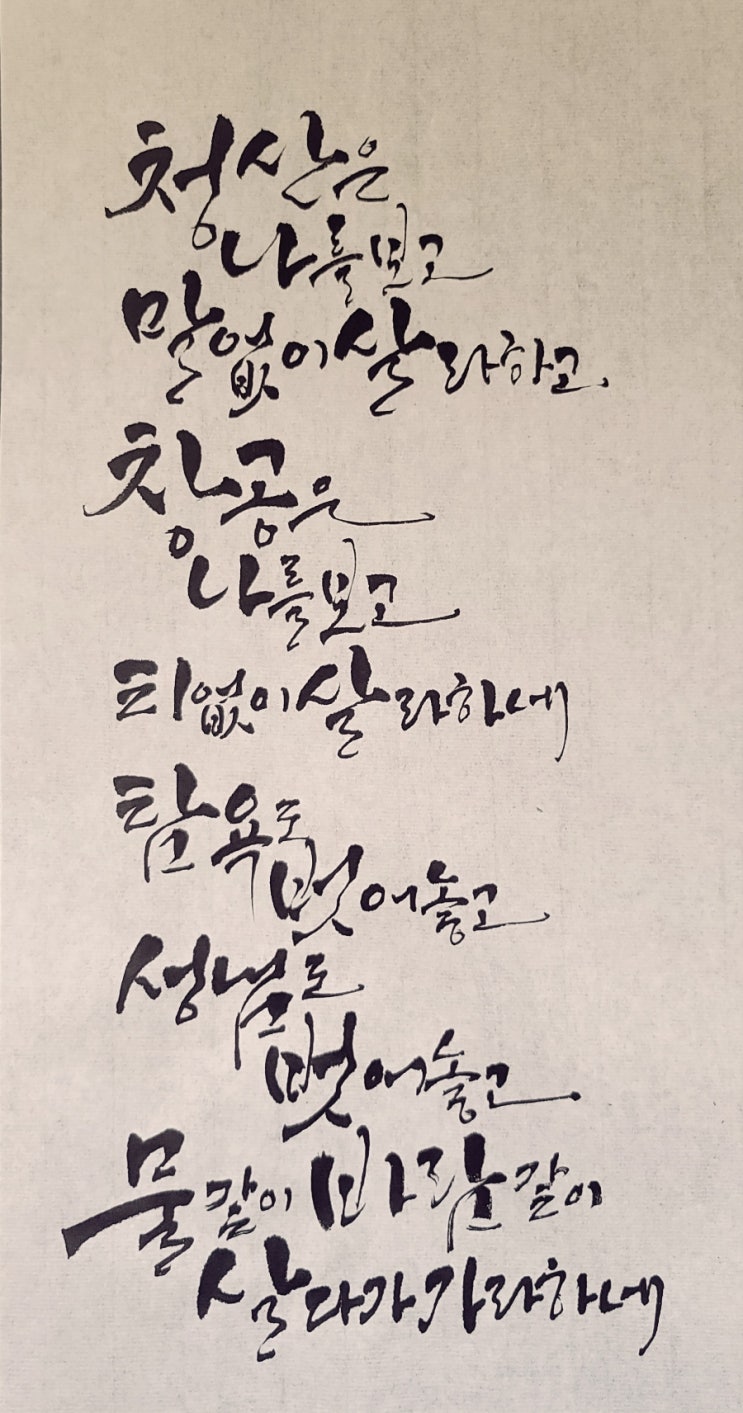 청산은
나를보고
말없이살라하고.
창공은
나를보고
티없이살라하네
탐욕도
벗어놓고
성냄도
벗어놓고
물같이바람같이
살다가가라하네